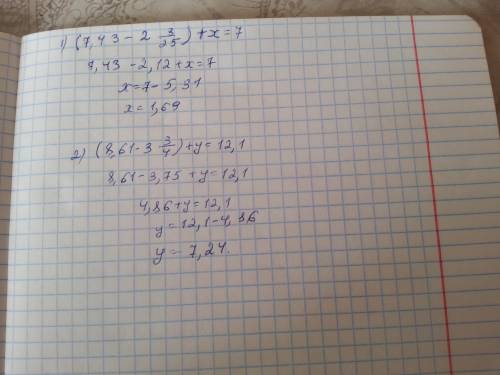 1) (7,43 - 2 3/25) + x = 7
7,43 - 2,12 + x = 7
x = 7 - 5,31
x = 1,69
2) (8,61 - 3 3/4) + y = 12,1
8,61 - 3,75 + y = 12,1
4,86 + y = 12,1
y = 12,1 - 4,86
y = 7,24.